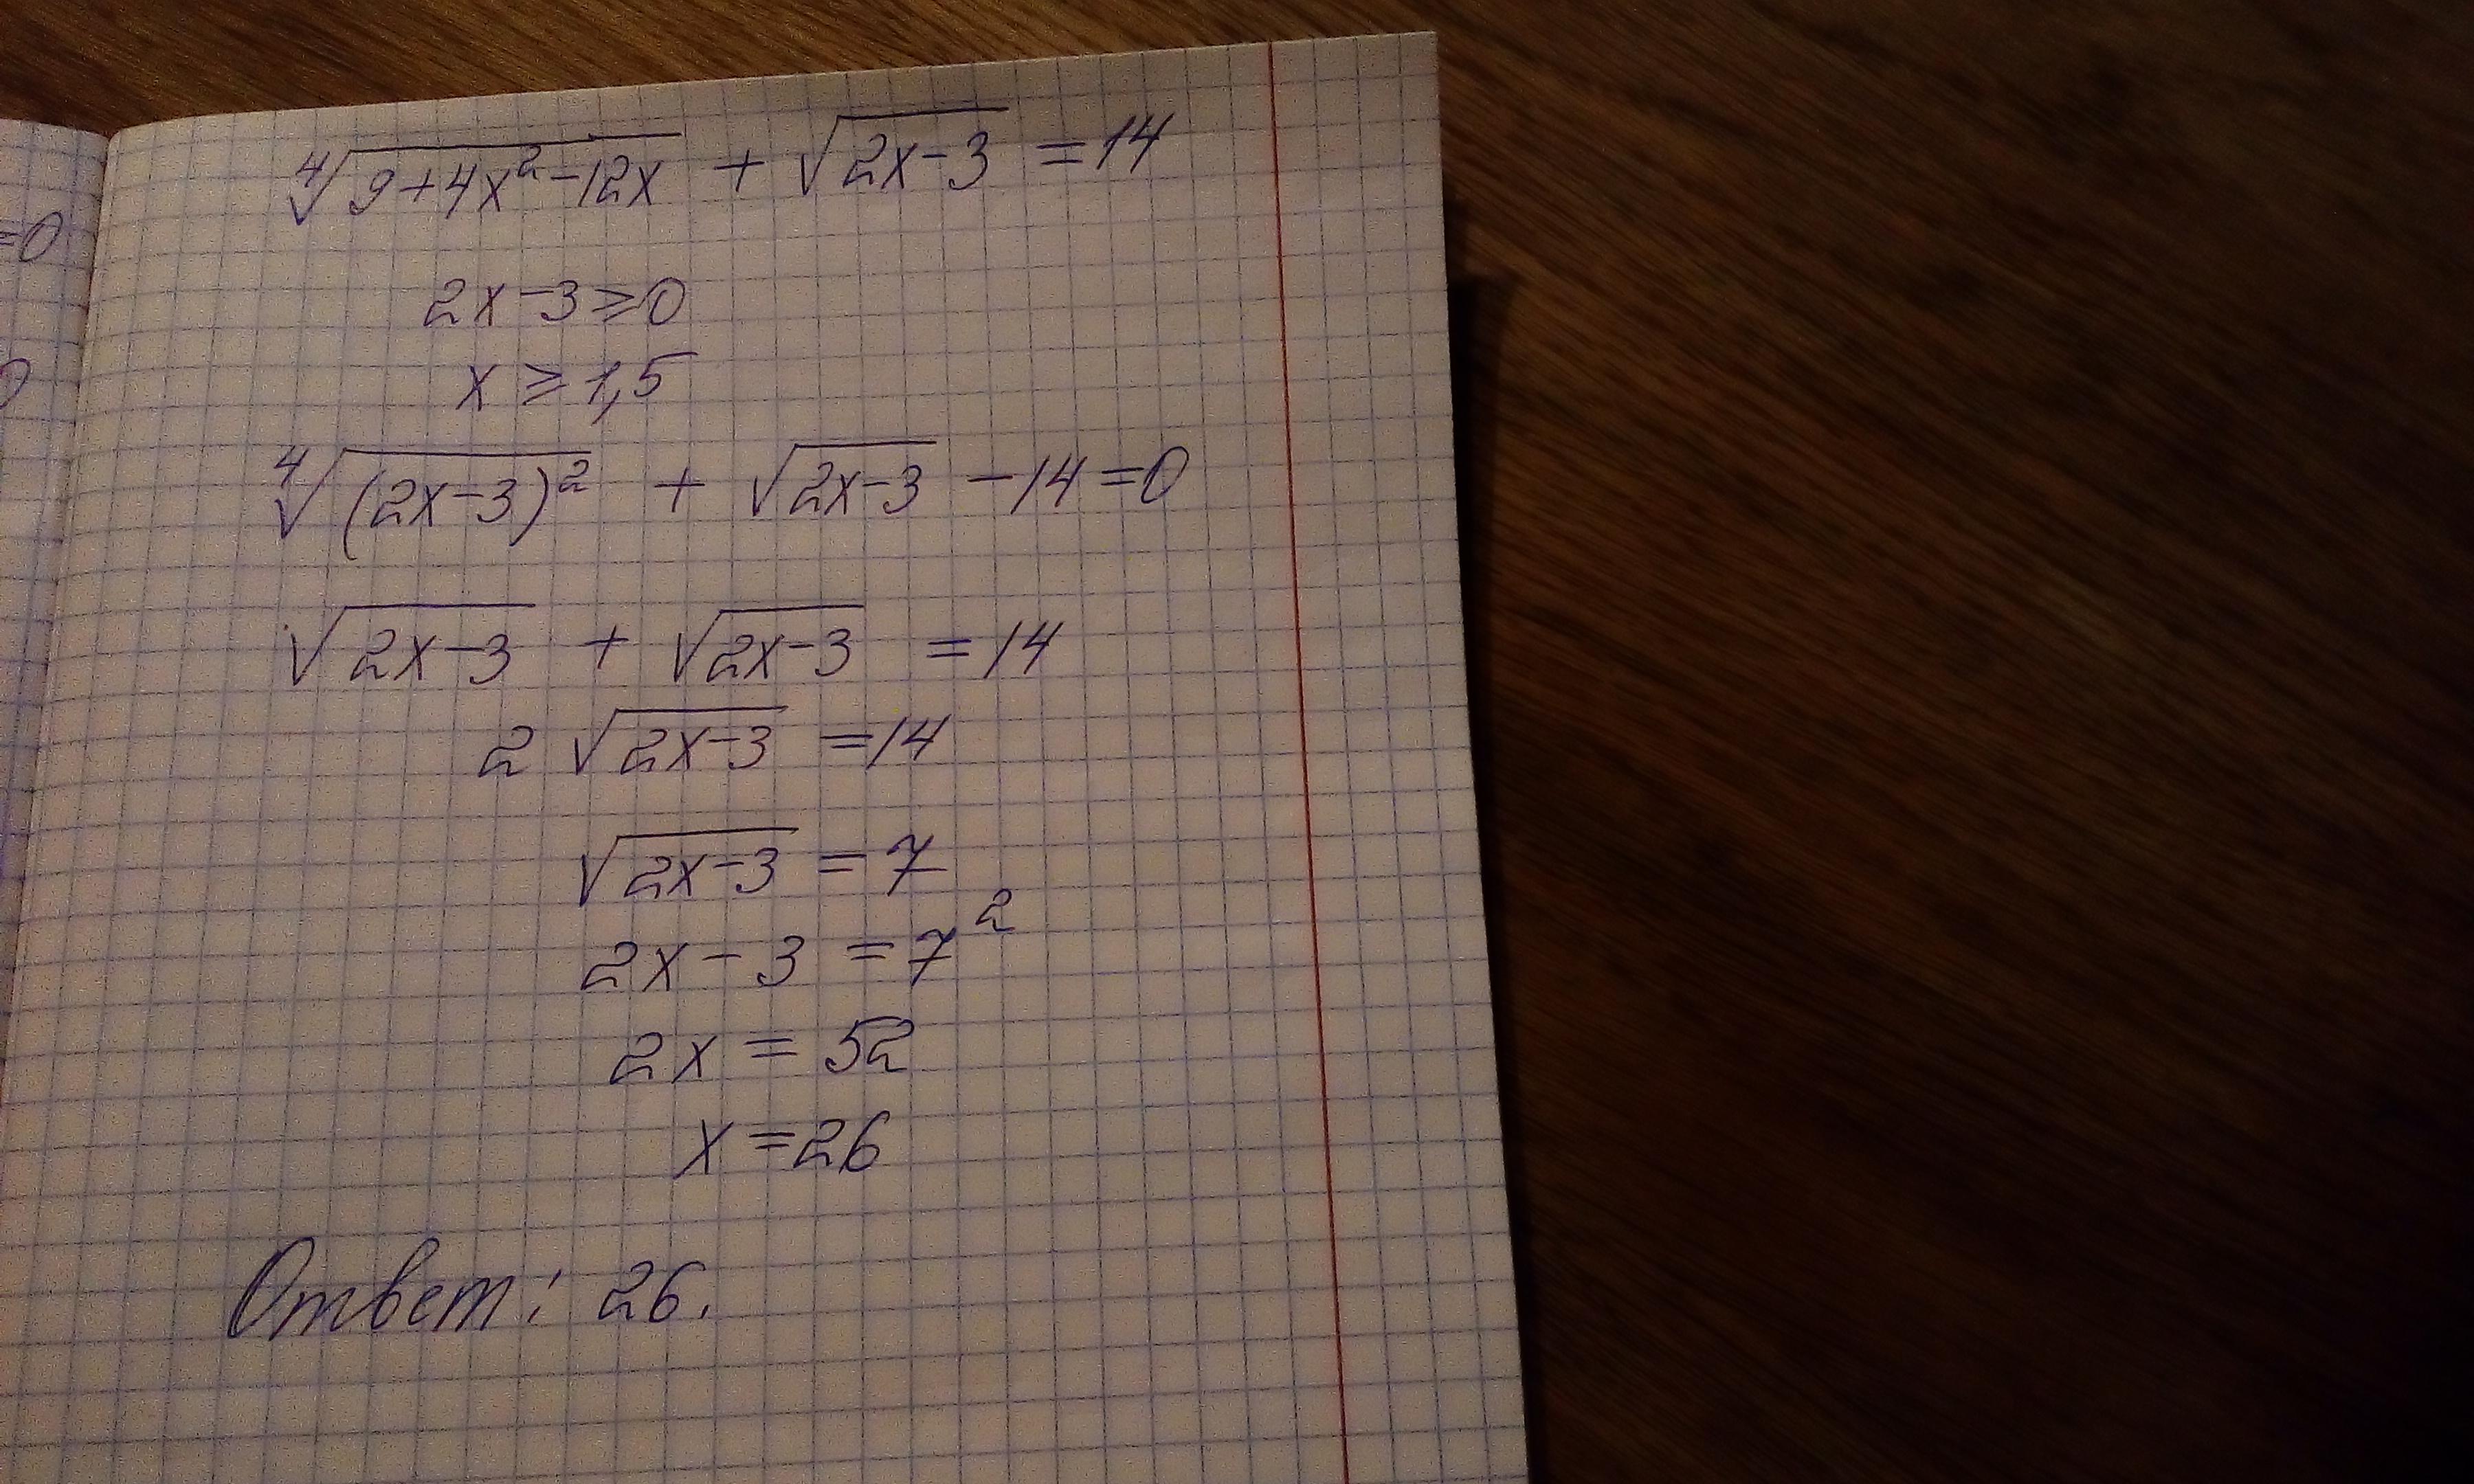 =0
⁴√(9+4x²-12x) + √(2x-3) = 14
2x-3≥0
x ≥ 1,5
⁴√((2x-3)²) + √(2x-3) - 14 = 0
√(2x-3) + √(2x-3) = 14
2√(2x-3) = 14
√(2x-3) = 7
2x-3 = 7²
2x = 52
x = 26
Ответ: 26.